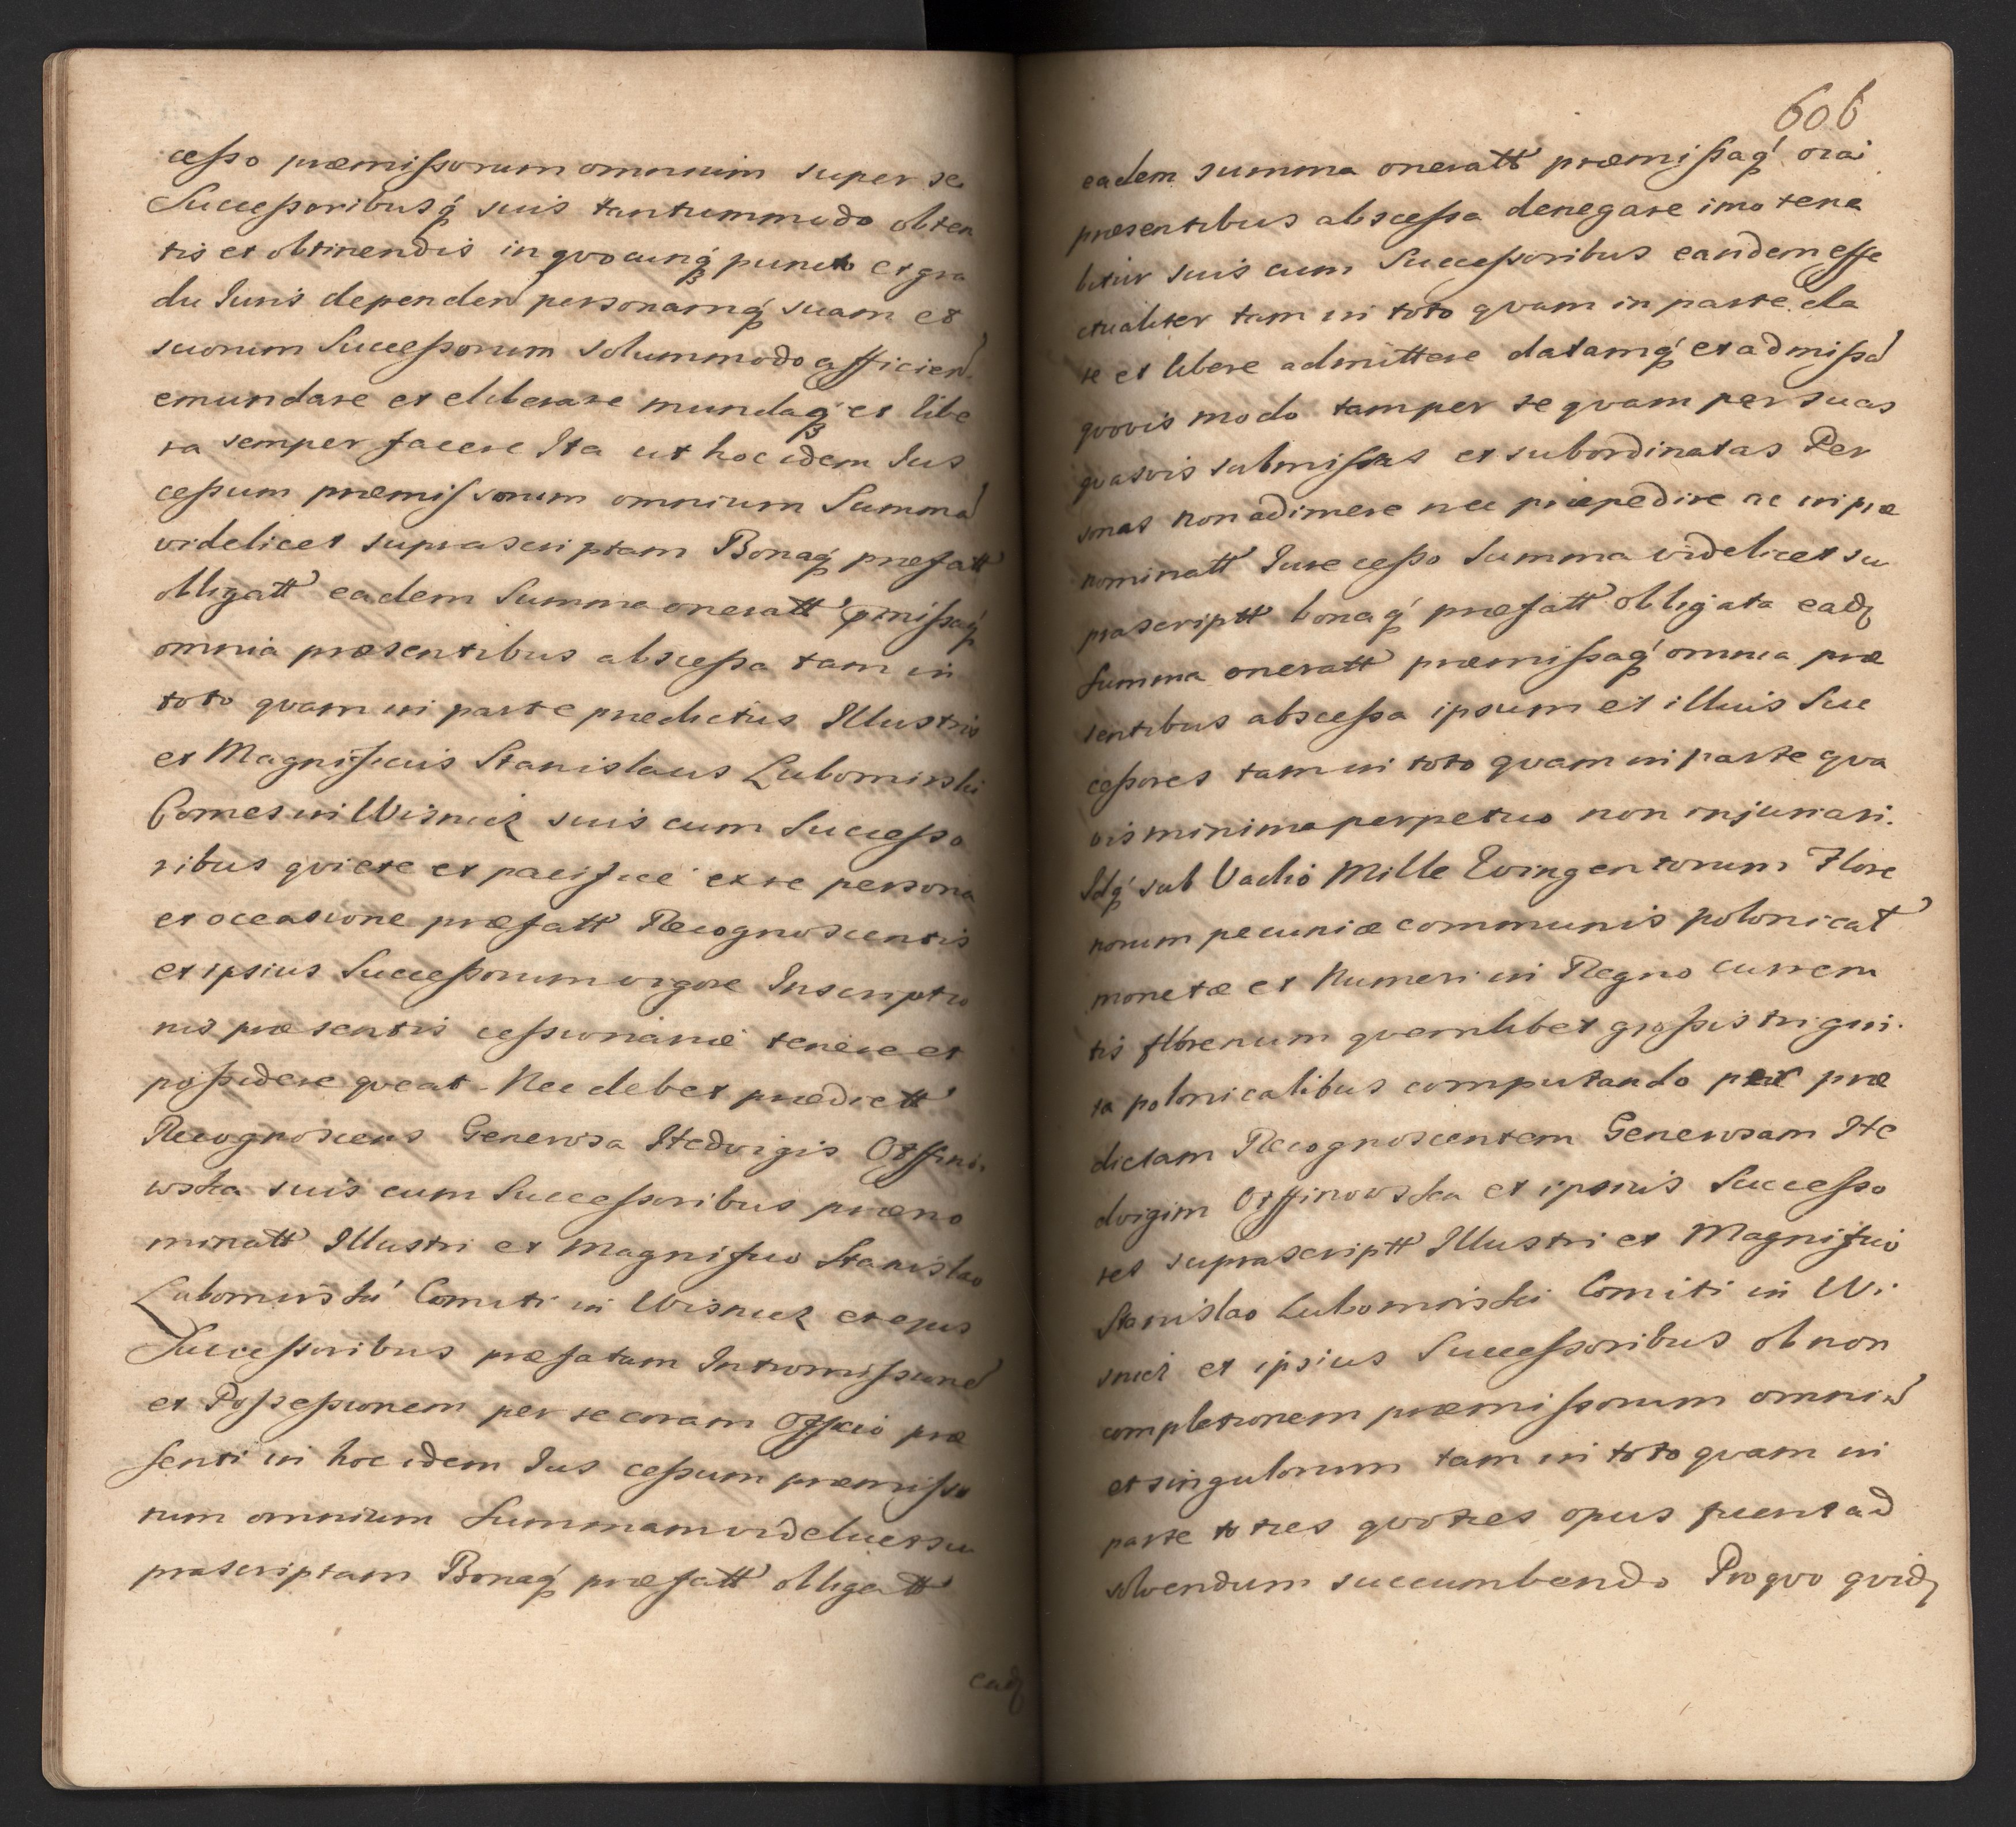 cesso præmissorum omnium super se
Successoribusq́ suis tantummodo obten
tis et obtinendis in qvocunq́ puncto et gra
du Iuris dependeń personamq́ suam et
suorum Successorum solummodo afficień
emundare et eliberare mundaq́ et libe
ra semper facere Ita ut hoc idem Ius
cessum præmissorum omnium Summá
videlicet suprascriptam Bonaq́ præfatt
obligatt eadem Summa oneratt pmissaq́
omnia præsentibus abscessa tam in
toto qvam in parte prædictus Illustris
et Magnificus Stanislaus Lubomirski
Comes in Wisnicz suis cum Successo
ribus qviete et pacifice ex re persona
et occasione præfatt Recognoscentis
et ipsius Successorum vigore Inscriptio
nis præsentis cessionariæ tenere et
possidere qveat. Nec debet prædictt
Recognoscens Generosa Hedvigis Orffino.
wska suis cum Successoribus præno
minatt Illustri et Magnifico Stanislao
Lubomirski Comiti in Wisnicz et ejus
Successoribus præfatam Intromissioné
et Possessionem per se coram Officio præ
senti in hoc idem Ius cessum præmisso
rum omnium Summam videlicet su
prascriptam Bonaq́ præfatt obligatt
eadȩ
606
eadem summa oneratt præmissaq́ oĩa
præsentibus abscessa denegare imo tene
bitur suis cum Successoribus eandem effe
ctualiter tam in toto qvam in parte da
re et libere admittere datamq́ et admissá
qvovis modo tam per se qvam per suas
qvasvis submissas et subordinatas Per
sonas non adimere nec præpedire ac in præ
nominatt Iure cesso Summa videlicet su
prascriptt bonaq́ præfatt obligata eadȩ
Summa oneratt præmissaq́ omnia præ
sentibus abscessa ipsum et illius Suc
cessores tam in toto qvam in parte qva
vis minima perpetuo non injuriari.
Idq́ sub Vadio Mille Qvingentorum Flore
norum pecuniæ communis polonicat
monetæ et Numeri in Regno curren
tis florenum qvemlibet grossis trigin.
ta polonicalibus computando per præ
dictam Recognoscentem Generosam He
dvigim Orffinowska et ipsius Successo
res suprascriptt Illustri et Magnifico
Stanislao Lubomirski Comiti in Wi.
snicz et ipsius Successoribus ob non
completionem præmissorum omniú
et singulorum tam in toto qvam in
parte toties qvoties opus fuerit ad
solvendum succumbendo Pro qvo qvidȩ